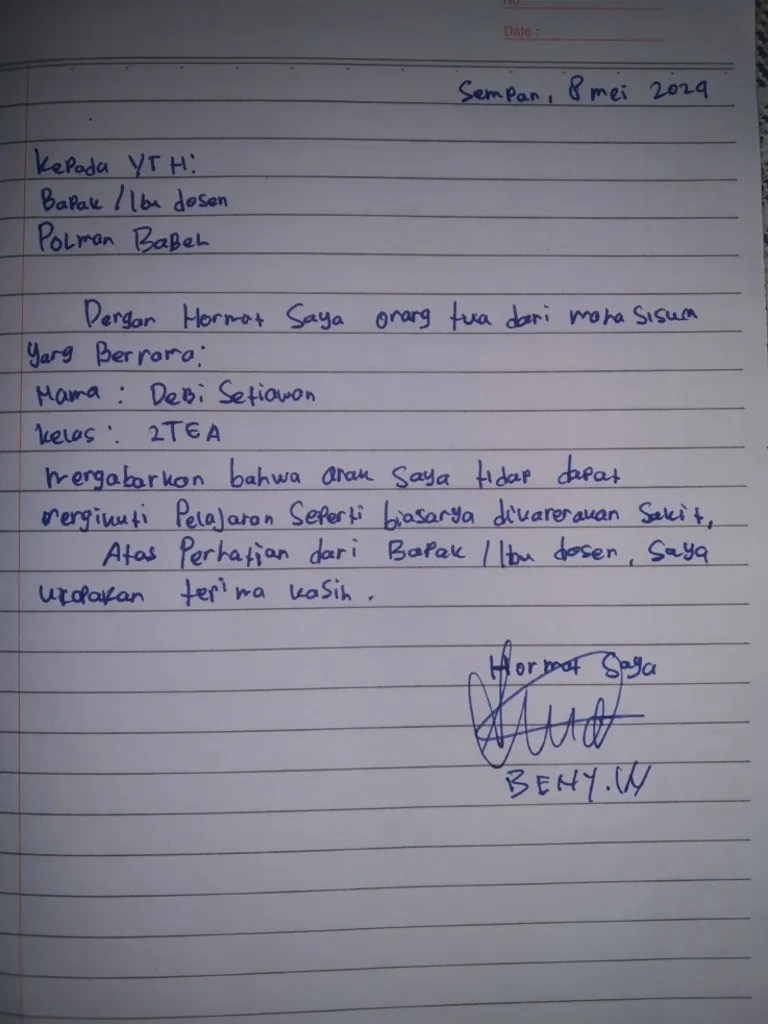 No:
Date :
Sempan, 8 mei 2024
Kepada YTH:
Bapak / Ibu dosen
Polman Babel
Dengan Hormat Saya orang tua dari maha siswa
yang Bernama:
Nama : DeBi Setiawan
kelas : 2TEA
mengabarkan bahwa anak saya tidap dapat
mengikuti Pelajaran Seperti biasanya dikarenakan Sakit,
Atas Perhatian dari Bapak / Ibu dosen, saya
ucapakan terima kasih.
Hormat Saya
BENY.W